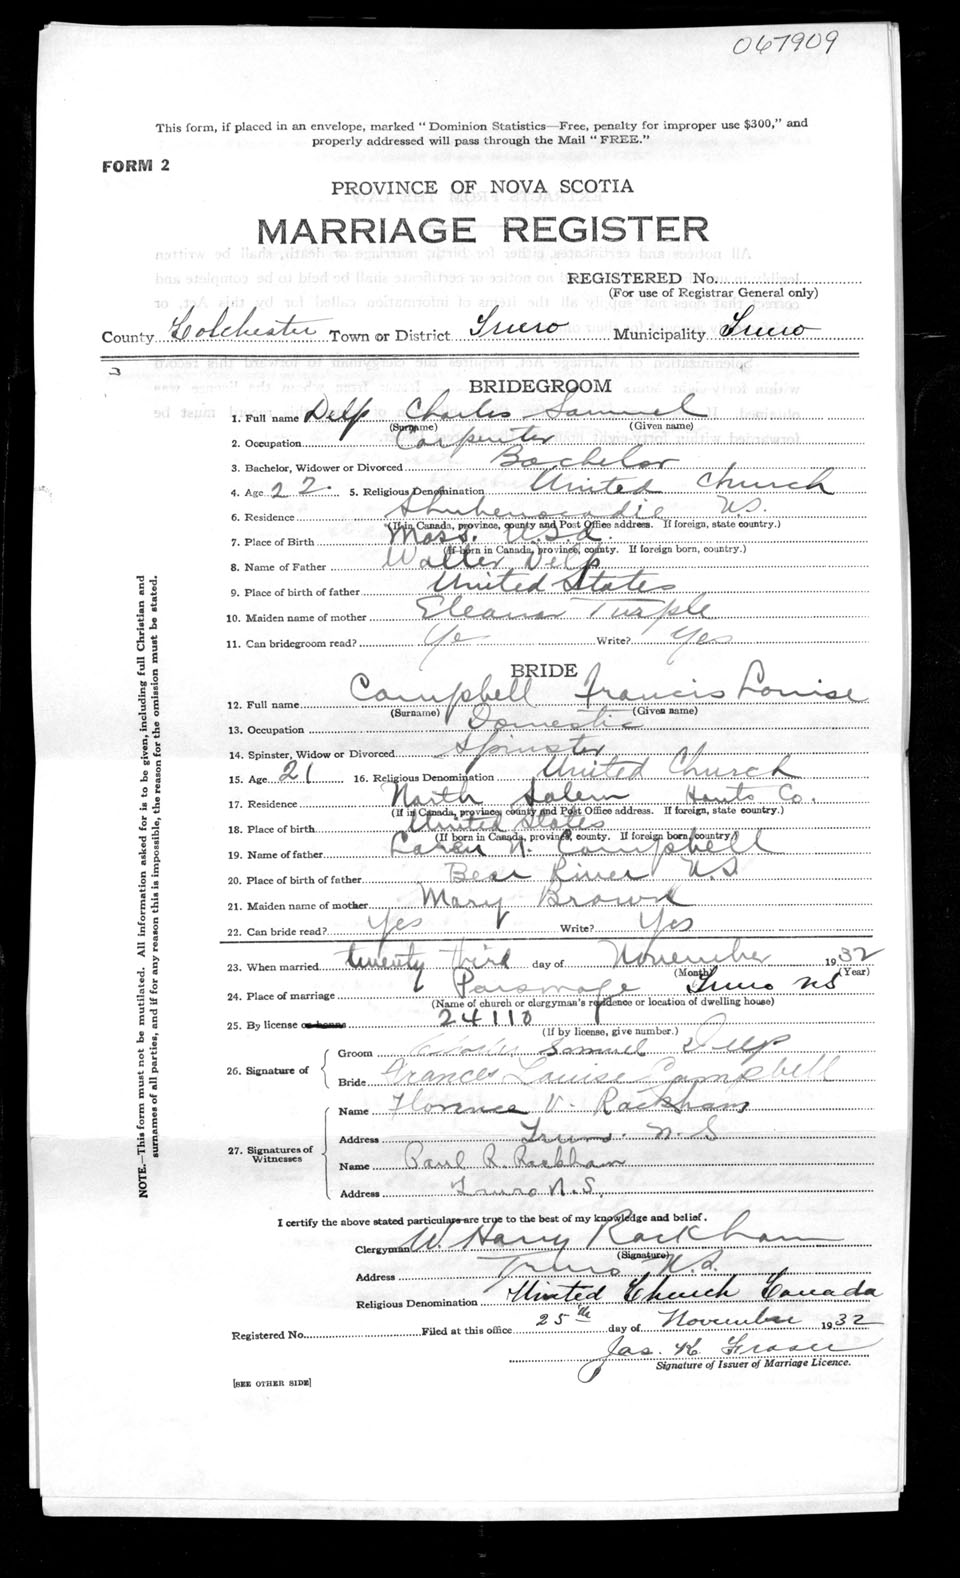 067909
This form, if placed in an envelope, marked "Dominion Statistics—Free, penalty for improper use $300," and
properly addressed will pass through the Mail "FREE."
FORM 2
PROVINCE OF NOVA SCOTIA
MARRIAGE REGISTER
REGISTERED No.
(For use of Registrar General only)
County Colchester Town or District Truro Municipality Truro
BRIDEGROOM
1. Full name Delp Charles Samuel
(Surname) (Given name)
2. Occupation Carpenter
3. Bachelor, Widower or Divorced Bachelor
4. Age 22. 5. Religious Denomination United Church
6. Residence Shubenacadie N.S.
(If in Canada, province, county and Post Office address. If foreign, state country.)
7. Place of Birth Mass. U.S.A.
(If born in Canada, province, county. If foreign born, country.)
8. Name of Father Walter Delp
9. Place of birth of father United States
10. Maiden name of mother Eleanor Turple
11. Can bridegroom read? Ye Write? Yes
BRIDE
12. Full name Campbell Francis Louise
(Surname) (Given name)
13. Occupation Domestic
14. Spinster, Widow or Divorced Spinster
15. Age 21 16. Religious Denomination United Church
17. Residence North Salem Hants Co.
(If in Canada, province, county and Post Office address. If foreign, state country.)
18. Place of birth United States
(If born in Canada, province, county. If foreign born, country.)
19. Name of father N. Campbell
20. Place of birth of father Bear River N.S
21. Maiden name of mother Mary Brown
22. Can bride read? Yes Write? Yes
23. When married twenty third day of November 1932
(Month) (Year)
24. Place of marriage Parsonage Truro NS
(Name of church or clergyman's residence or location of dwelling house)
25. By license or banns 24110
(If by license, give number.)
26. Signature of
Groom Charles Samuel Delp
Bride Frances Louise Campbell
27. Signatures of Witnesses
Name Florence V. Rackham
Address Truro. N.S
Name Paul R. Rackham
Address Truro N.S.
I certify the above stated particulars are true to the best of my knowledge and belief.
Clergyman W. Harry Rackham
(Signature)
Address Truro N.S.
Religious Denomination United Church Canada
Registered No. Filed at this office 25th day of November 1932
Jas. K Fraser
Signature of Issuer of Marriage Licence.
[SEE OTHER SIDE]
NOTE.—This form must not be mutilated. All information asked for is to be given, including full Christian and
surnames of all parties, and if for any reason this is impossible, the reason for the omission must be stated.